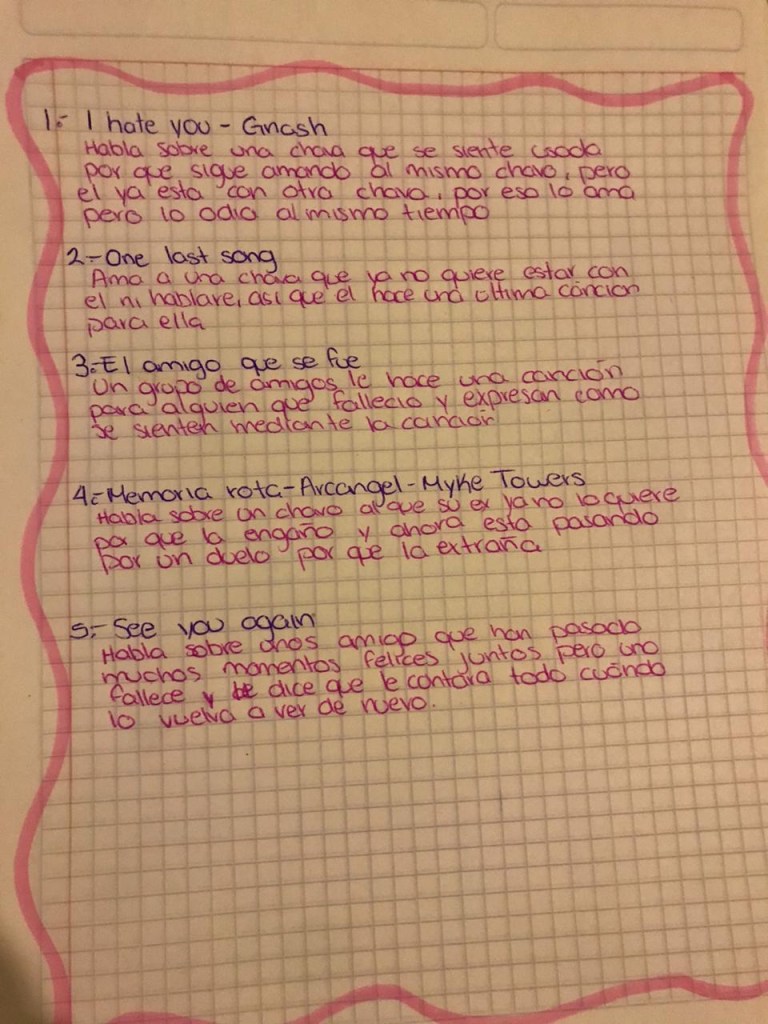 1.- I hate you - Gnash
Habla sobre una chava que se siente usada
por que sigue amando al mismo chavo, pero
el ya esta con otra chava, por eso lo ama
pero lo odia al mismo tiempo
2.- One last song
Ama a una chava que ya no quiere estar con
el ni hablare, asi que el hace una ultima cancion
para ella
3.- El amigo que se fue
Un grupo de amigos le hace una canción
para alguien que fallecio y expresan como
se sienten mediante la canción
4.- Memoria rota - Arcangel - Myke Towers
Habla sobre un chavo al que su ex ya no lo quiere
por que la engaño y ahora esta pasando
por un duelo por que la extraña
5.- See you again
Habla sobre unos amigo que han pasado
muchos momentos felices juntos pero uno
fallece y dice que le contara todo cuándo
lo vuelva a ver de nuevo.